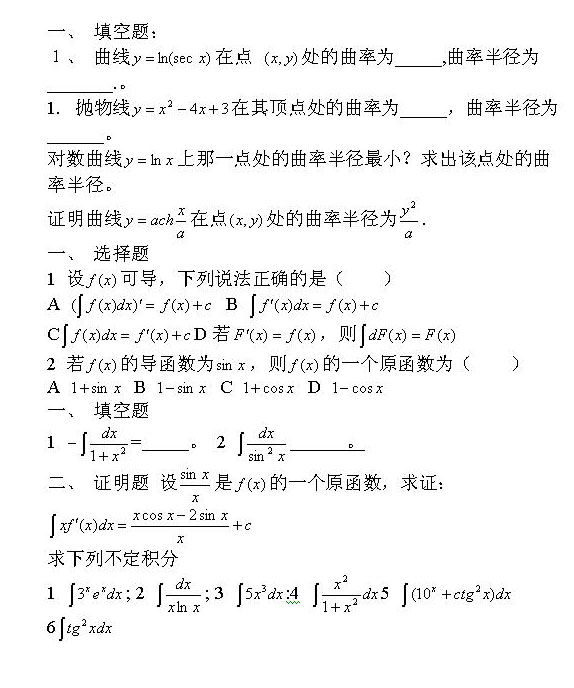 一、 填空题:
1、 曲线 y = ln(sec x) 在点 (x, y) 处的曲率为_____,曲率半径为
_______.。
1. 抛物线 y = x² − 4x + 3 在其顶点处的曲率为_____，曲率半径为
______。
对数曲线 y = ln x 上那一点处的曲率半径最小？求出该点处的曲
率半径。
证明曲线 y = ach x/a 在点 (x, y) 处的曲率半径为 y²/a .
一、 选择题
1 设 f(x) 可导，下列说法正确的是（ ）
A (∫f(x)dx)' = f(x)+c B ∫f'(x)dx = f(x)+c
C ∫f(x)dx = f'(x)+c D 若 F'(x) = f(x)，则 ∫dF(x) = F(x)
2 若 f(x) 的导函数为 sin x，则 f(x) 的一个原函数为（ ）
A 1+sin x B 1−sin x C 1+cos x D 1−cos x
一、 填空题
1 −∫dx/(1+x²) =_____。 2 ∫dx/sin² x ________。
二、 证明题 设 sin x/x 是 f(x) 的一个原函数，求证:
∫xf'(x)dx = (x cos x − 2 sin x)/x + c
求下列不定积分
1 ∫3ˣeˣdx ; 2 ∫dx/(x ln x) ; 3 ∫5x³dx ;4 ∫x²/(1+x²) dx 5 ∫(10ˣ + ctg²x)dx
6 ∫tg²xdx